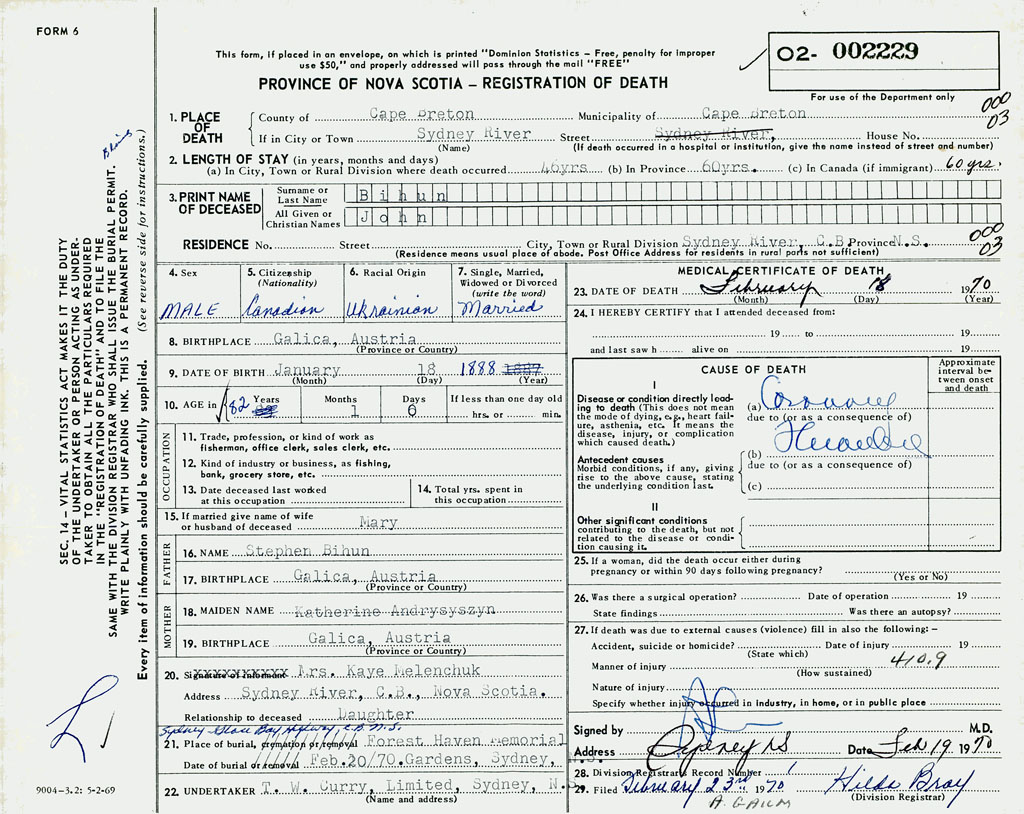 FORM 6
This form, if placed in an envelope, on which is printed "Dominion Statistics – Free, penalty for improper
use $50," and properly addressed will pass through the mail "FREE"
PROVINCE OF NOVA SCOTIA – REGISTRATION OF DEATH
02- 002229
For use of the Department only
000
03
1. PLACE OF DEATH
County of Cape Breton Municipality of Cape Breton
If in City or Town Sydney River Street Sydney River, House No.
(Name) (If death occurred in a hospital or institution, give the name instead of street and number)
2. LENGTH OF STAY (in years, months and days)
(a) In City, Town or Rural Division where death occurred 46yrs (b) In Province 60yrs. (c) In Canada (if immigrant) 60 yrs.
3. PRINT NAME OF DECEASED
Surname or Last Name Bihun
All Given or Christian Names John
RESIDENCE No. Street City, Town or Rural Division Sydney River, C.B Province N.S.
(Residence means usual place of abode. Post Office Address for residents in rural parts not sufficient)
000
03
4. Sex
MALE
5. Citizenship
(Nationality)
Canadian
6. Racial Origin
Ukrainian
7. Single, Married,
Widowed or Divorced
(write the word)
Married
8. BIRTHPLACE Galica, Austria
(Province or Country)
9. DATE OF BIRTH January 18 1888 1887
(Month) (Day) (Year)
10. AGE in 82 Years Months 1 Days 0 If less than one day old
hrs. or min.
OCCUPATION
11. Trade, profession, or kind of work as
fisherman, office clerk, sales clerk, etc.
12. Kind of industry or business, as fishing,
bank, grocery store, etc.
13. Date deceased last worked
at this occupation
14. Total yrs. spent in
this occupation
15. If married give name of wife
or husband of deceased Mary
FATHER
16. NAME Stephen Bihun
17. BIRTHPLACE Galica, Austria
(Province or Country)
MOTHER
18. MAIDEN NAME Katherine Andrysyszyn
19. BIRTHPLACE Galica, Austria
(Province or Country)
20. Signature of Informant Mrs. Kaye Melenchuk
Address Sydney River, C.B., Nova Scotia.
Relationship to deceased Daughter
Sydney Glace Bay Highway, C.B. N.S.
21. Place of burial, cremation or removal Forest Haven Memorial
Date of burial or removal Feb.20/70. Gardens, Sydney, N.S.
22. UNDERTAKER T. W. Curry, Limited, Sydney, N.S.
(Name and address)
MEDICAL CERTIFICATE OF DEATH
23. DATE OF DEATH February 18 1970
(Month) (Day) (Year)
24. I HEREBY CERTIFY that I attended deceased from:
19 to 19
and last saw h alive on 19
CAUSE OF DEATH
Approximate
interval be-
tween onset
and death
I
Disease or condition directly lead-
ing to death (This does not mean
the mode of dying, e.g., heart fail-
ure, asthenia, etc. It means the
disease, injury, or complication
which caused death.)
(a) Coronary
due to (or as a consequence of)
Antecedent causes
Morbid conditions, if any, giving
rise to the above cause, stating
the underlying condition last.
(b)
due to (or as a consequence of)
(c)
II
Other significant conditions
contributing to the death, but not
related to the disease or condi-
tion causing it.
25. If a woman, did the death occur either during
pregnancy or within 90 days following pregnancy?
(Yes or No)
26. Was there a surgical operation? Date of operation 19
State findings Was there an autopsy?
27. If death was due to external causes (violence) fill in also the following: –
Accident, suicide or homicide? Date of injury 19
(State which)
410.9
Manner of injury
(How sustained)
Nature of injury
Specify whether injury occurred in industry, in home, or in public place
Signed by M.D.
Address Sydney NS Date Feb 19 1970
28. Division Registrar's Record Number
29. Filed February 23rd 1970 Hilda Bray
(Division Registrar)
SEC. 14 – VITAL STATISTICS ACT MAKES IT THE DUTY
OF THE UNDERTAKER OR PERSON ACTING AS UNDER-
TAKER TO OBTAIN ALL THE PARTICULARS REQUIRED
IN THE "REGISTRATION OF DEATH" AND TO FILE THE
SAME WITH THE DIVISION REGISTRAR WHO SHALL ISSUE THE BURIAL PERMIT.
WRITE PLAINLY WITH UNFADING INK. THIS IS A PERMANENT RECORD.
Every item of information should be carefully supplied. (See reverse side for instructions.)
9004–3.2: 5-2-69